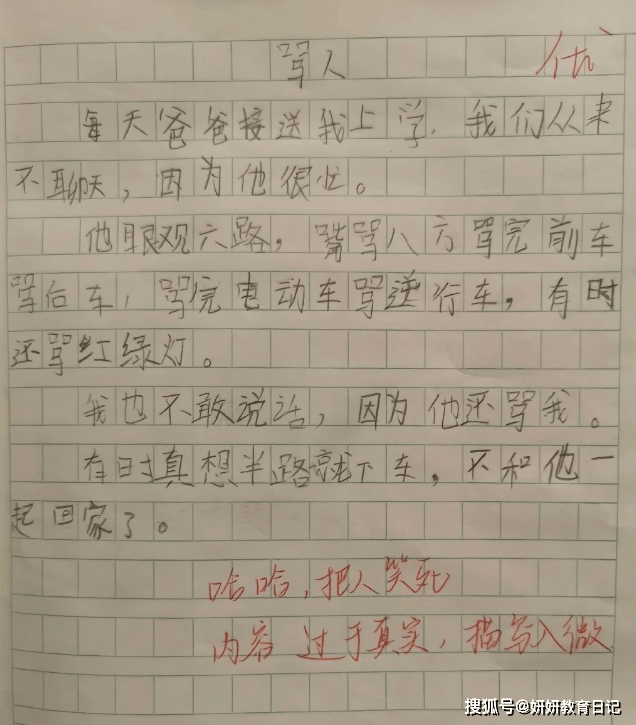 骂人
优
每天爸爸接送我上学,我们从来
不聊天,因为他很忙。
他眼观六路,嘴骂八方骂完前车
骂后车,骂完电动车骂逆行车,有时
还骂红绿灯。
我也不敢说话,因为他还骂我。
有时真想半路就下车,不和他一
起回家了。
哈哈,把人笑死
内容过于真实,描写入微
搜狐号@妍妍教育日记